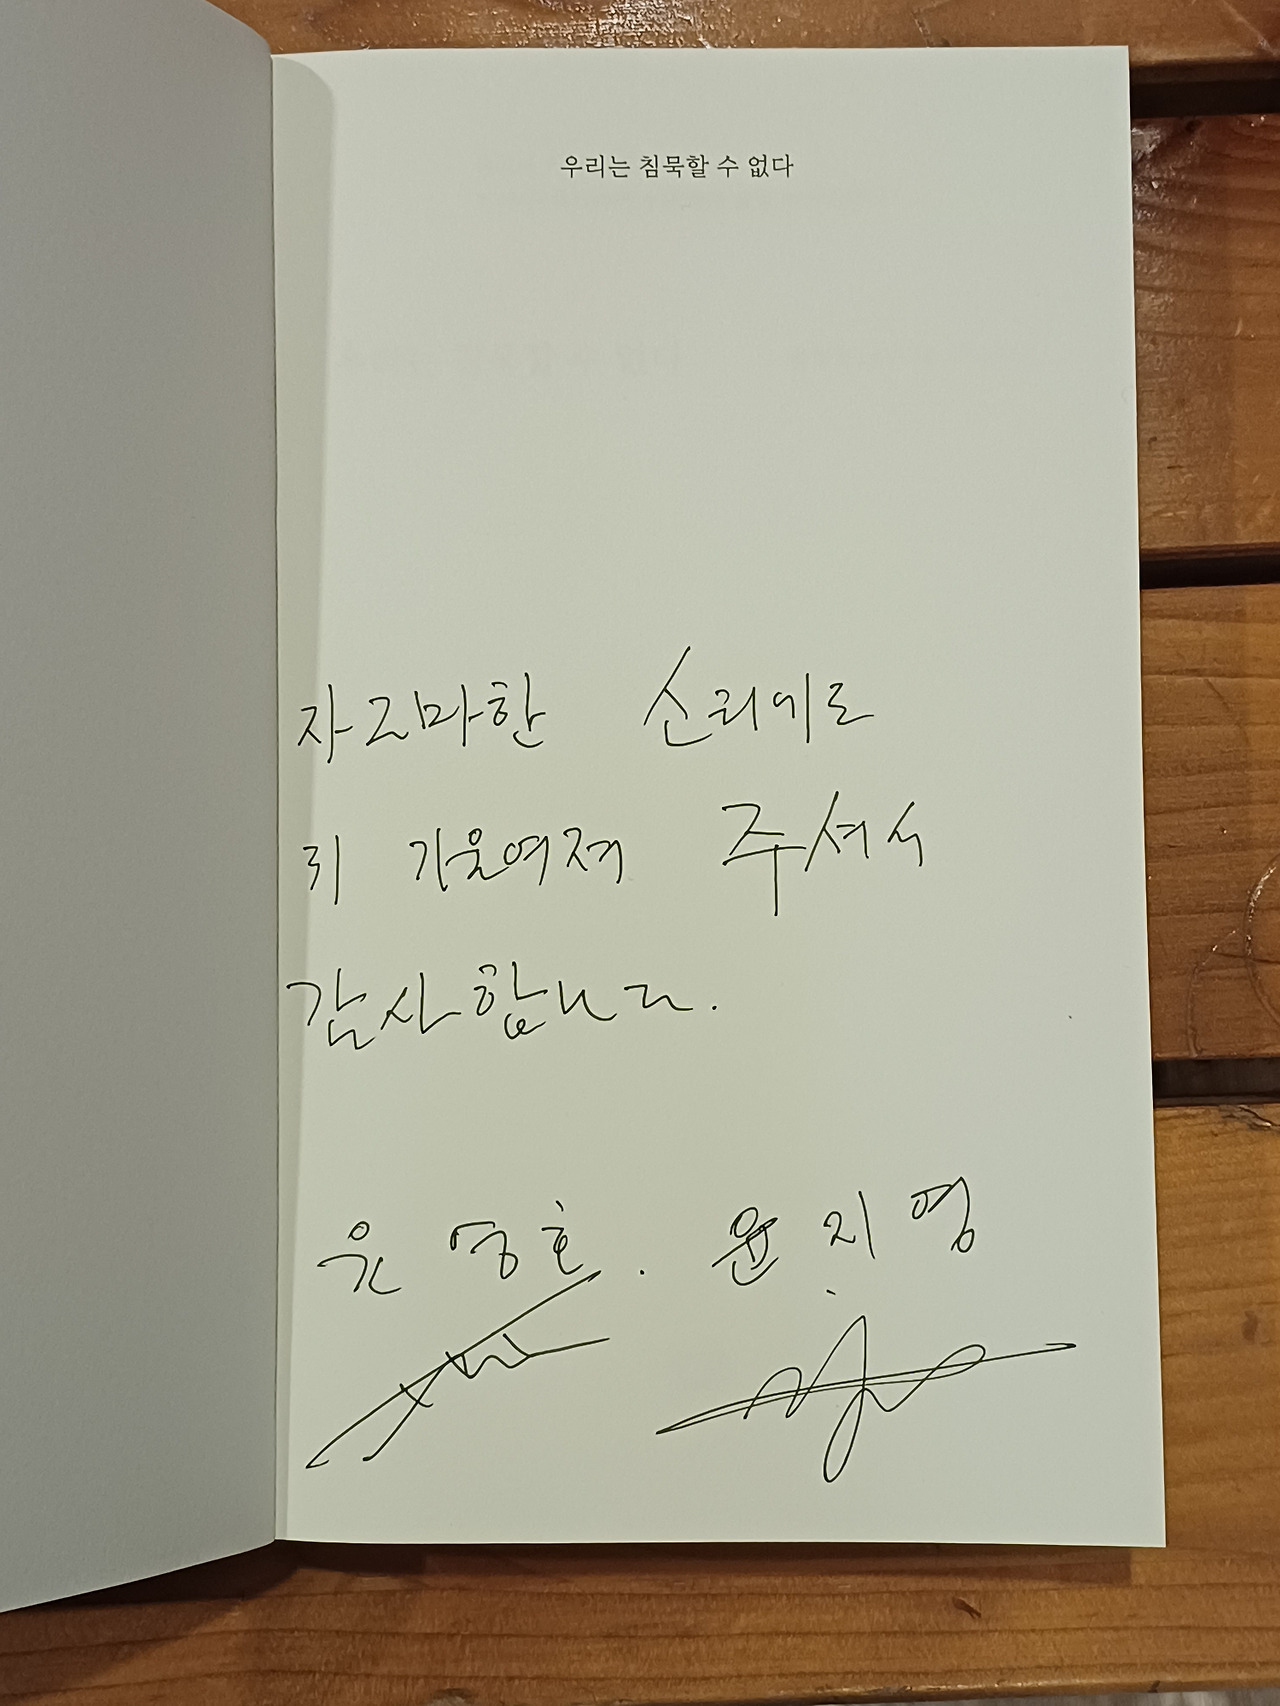 우리는 침묵할 수 없다
자그마한 소리에로
귀 기울여져 주셔서
감사합니다.
윤영호. 윤지영